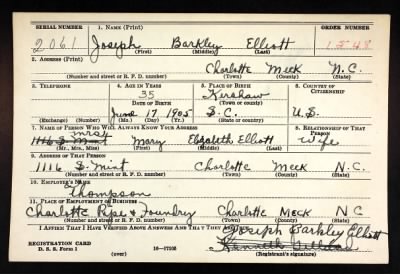 SERIAL NUMBER 1. NAME (Print) ORDER NUMBER
2061 Joseph Barkley Elliott 1548
(First) (Middle) (Last)
2. ADDRESS (Print)
Charlotte Meck N.C.
(Number and street or R. F. D. number) (Town) (County) (State)
3. TELEPHONE 4. AGE IN YEARS 5. PLACE OF BIRTH 6. COUNTRY OF CITIZENSHIP
35 Kershaw
DATE OF BIRTH (Town or county)
June 17 1905 S.C. U.S.
(Exchange) (Number) (Mo.) (Day) (Yr.) (State or country)
7. NAME OF PERSON WHO WILL ALWAYS KNOW YOUR ADDRESS 8. RELATIONSHIP OF THAT PERSON
Mrs. Mary Elizabeth Elliott Wife
(Mr., Mrs., Miss) (First) (Middle) (Last)
9. ADDRESS OF THAT PERSON
1116 S. Mint Charlotte Meck N.C.
(Number and street or R. F. D. number) (Town) (County) (State)
10. EMPLOYER'S NAME
Thompson
11. PLACE OF EMPLOYMENT OR BUSINESS
Charlotte Pipe & Foundry Charlotte Meck NC
(Number and street or R. F. D. number) (Town) (County) (State)
I AFFIRM THAT I HAVE VERIFIED ABOVE ANSWERS AND THAT THEY ARE TRUE.
Joseph Barkley Elliott
REGISTRATION CARD
D. S. S. Form 1 (over) (Registrant's signature)